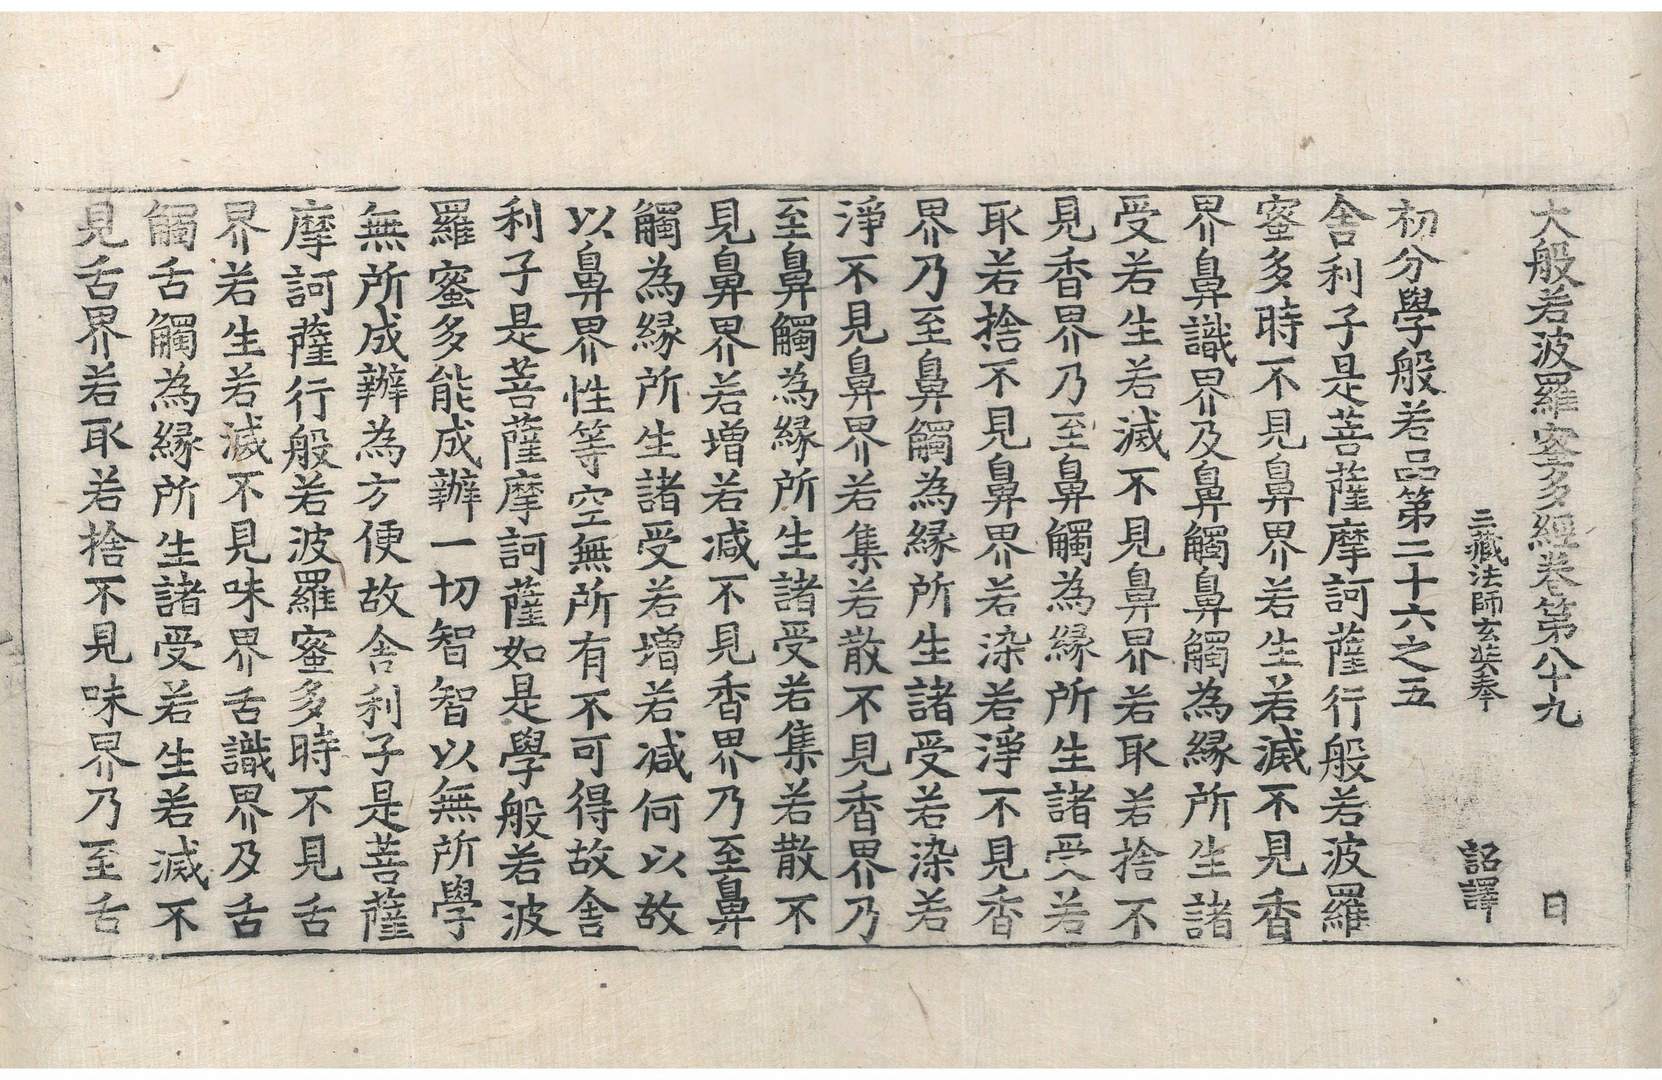 大般若波羅蜜多經卷第八十九 日
三藏法師玄奘奉 詔譯
初分學般若品第二十六之五
舍利子是菩薩摩訶薩行般若波羅
蜜多時不見鼻界若生若滅不見香
界鼻識界及鼻觸鼻觸為緣所生諸
受若生若滅不見鼻界若取若捨不
見香界乃至鼻觸為緣所生諸受若
取若捨不見鼻界若染若淨不見香
界乃至鼻觸為緣所生諸受若染若
淨不見鼻界若集若散不見香界乃
至鼻觸為緣所生諸受若集若散不
見鼻界若增若減不見香界乃至鼻
觸為緣所生諸受若增若減何以故
以鼻界性等空無所有不可得故舍
利子是菩薩摩訶薩如是學般若波
羅蜜多能成辦一切智智以無所學
無所成辦為方便故舍利子是菩薩
摩訶薩行般若波羅蜜多時不見舌
界若生若滅不見味界舌識界及舌
觸舌觸為緣所生諸受若生若滅不
見舌界若取若捨不見味界乃至舌